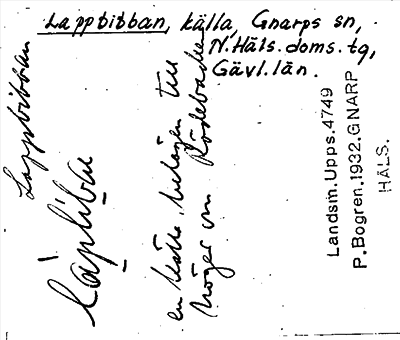 Lappbibban, källa, Gnarps sn,
N. Häls. doms. tg,
Gävl. län.
Lappbibban
làp̀liban
en källa, belägen till
höger om Rödebacke
Landsm. Upps. 4749
P. Bogren. 1932. GNARP
HÄLS.